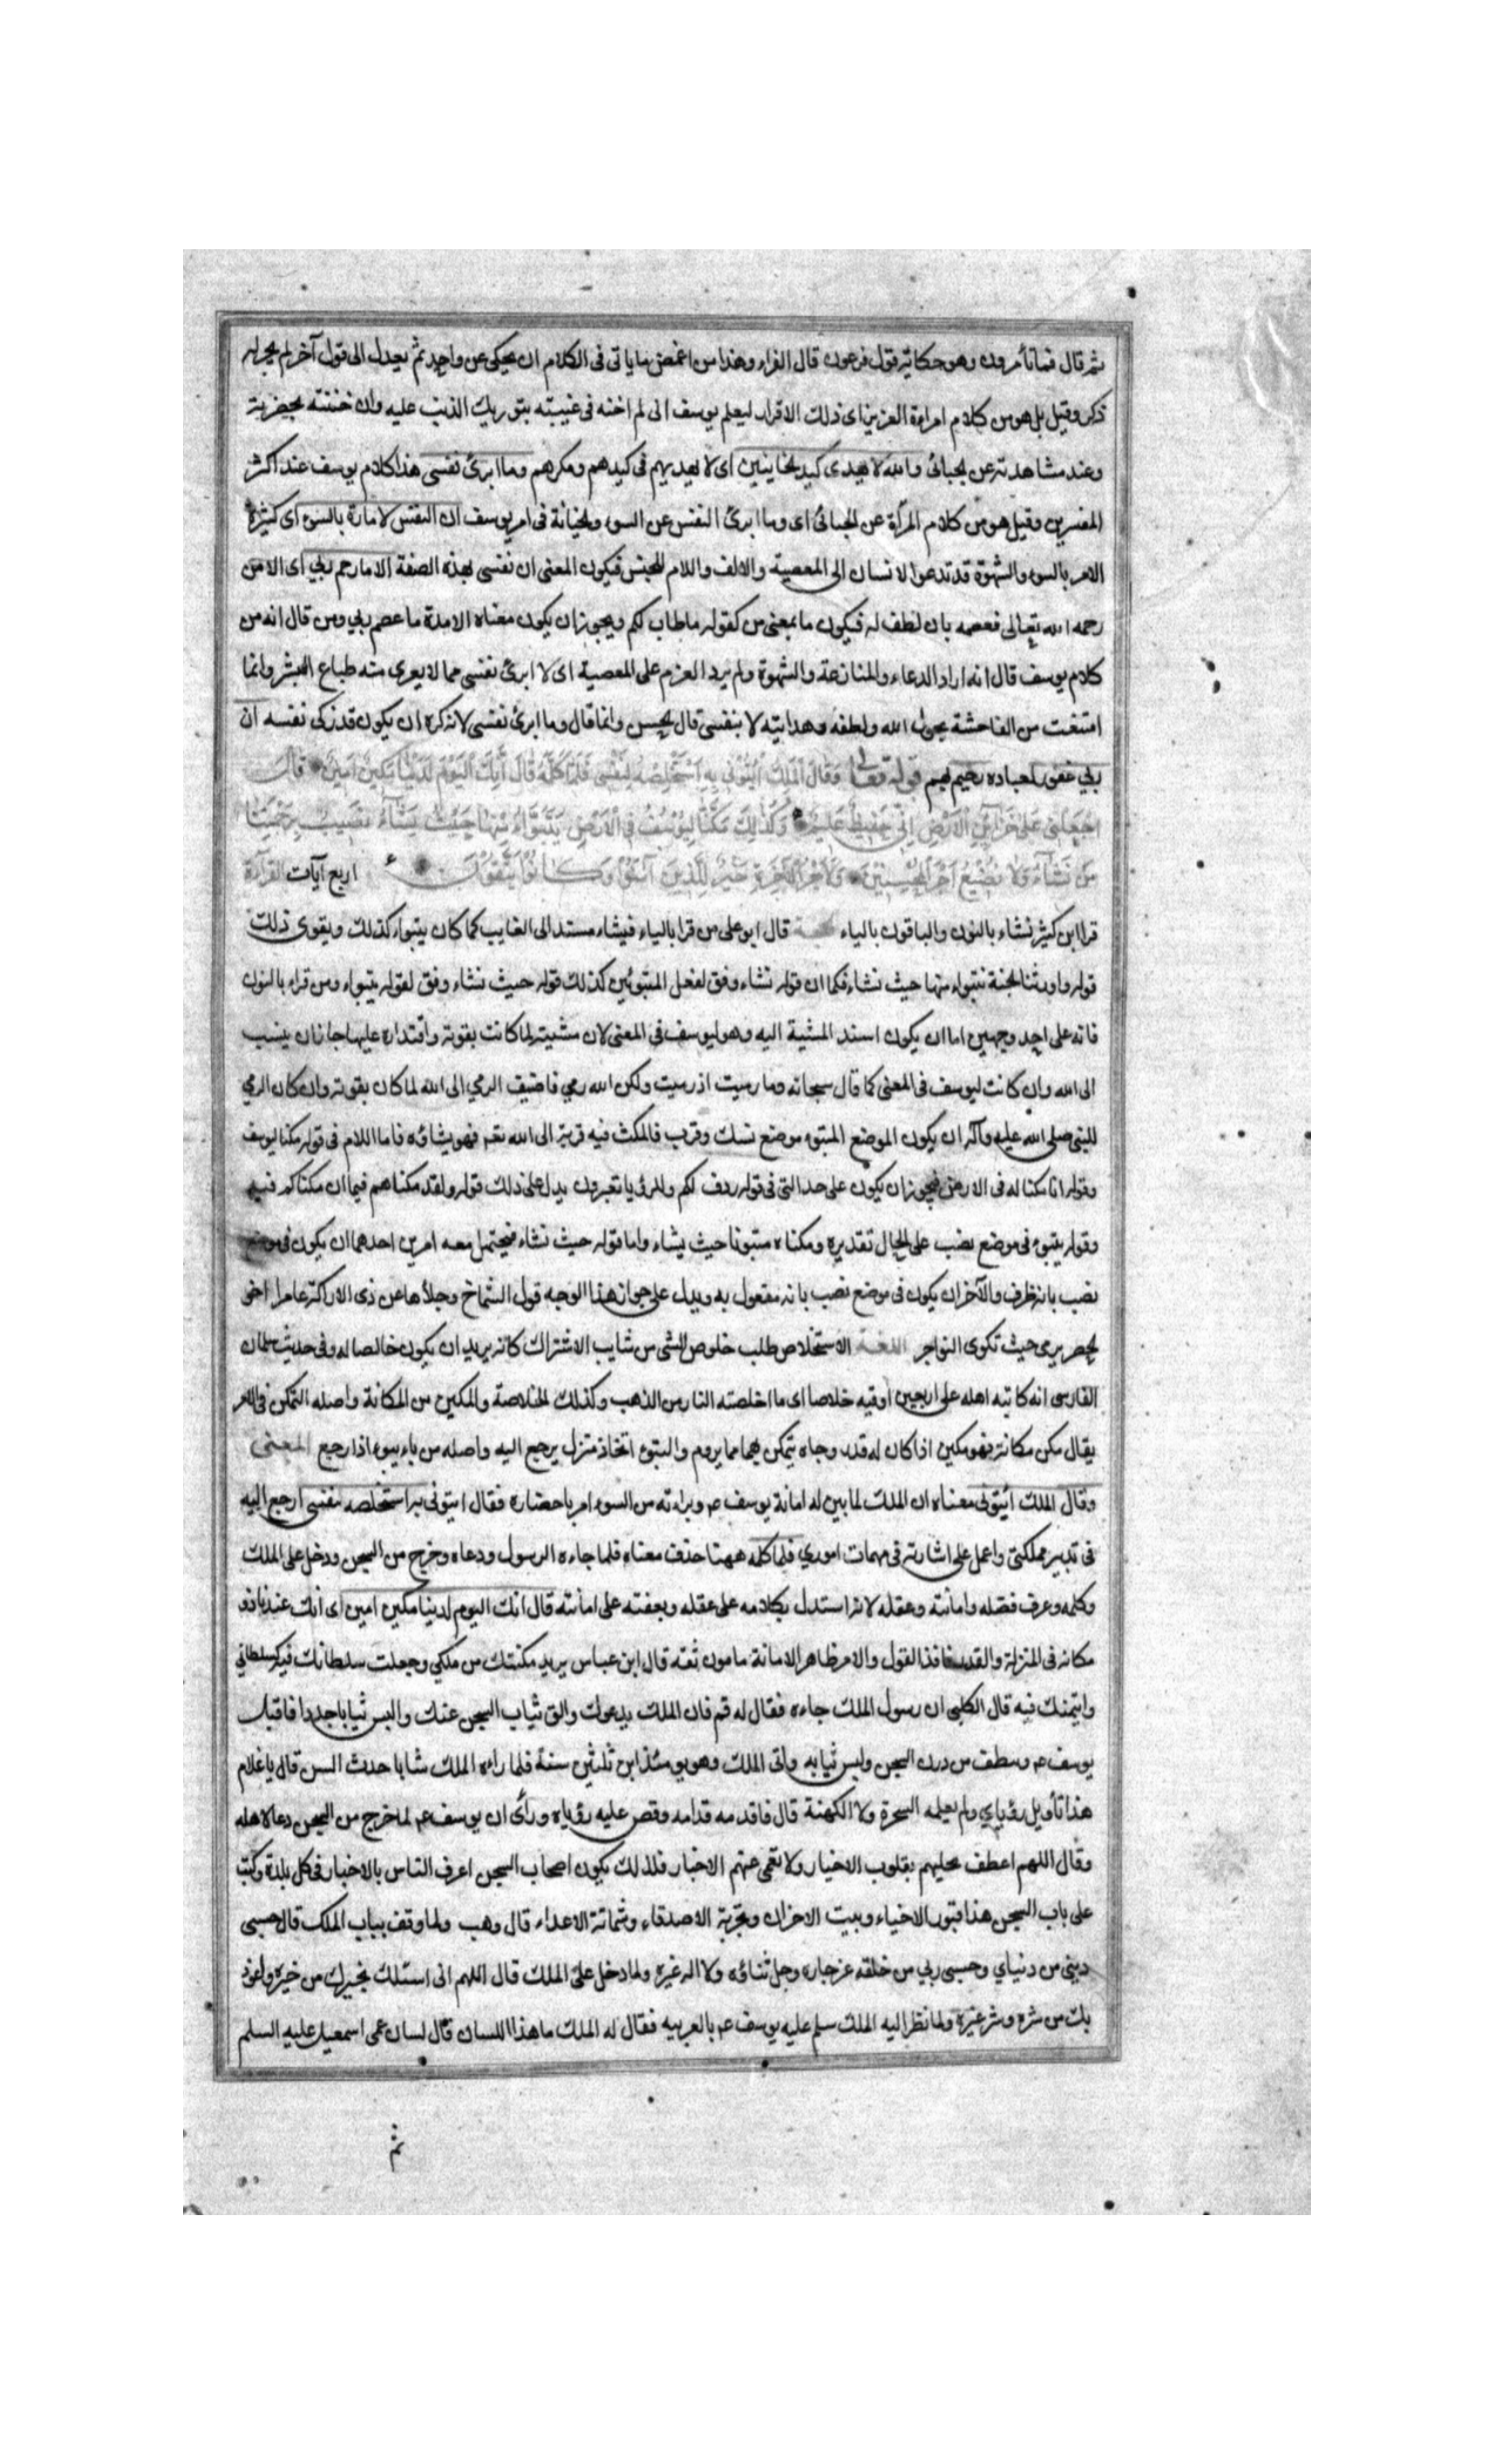 ثم قال فماذا تأمرون وهو حكاية قول فرعون قال الفراء وهذا من اغمض ما ياتى فى الكلام ان يحكى عن واحد ثم يعدل الى قول آخر لم يجر له
ذكر وقيل بل هو من كلام امراءة العزيز اى ذلك الاقرار ليعلم يوسف انى لم اخنه فى غيبته بتوريك الذنب عليه وان خنته بحضرته
وعند مشاهدته عن الجبائى والله لا يهدى كيد الخاينين اى لا يهديهم فى كيدهم ومكرهم وما ابرئ نفسى هذا كلام يوسف عند اكثر
المفسرين وقيل هو من كلام المرأة عن الجبائى اى وما ابرئ النفس عن السوء والخيانة فى امر يوسف ان النفس لامارة بالسوء اى كثيرة
الامر بالسوء والشهوة قد تدعوا الانسان الى المعصية والالف واللام للجنس فيكون المعنى ان نفسى بهذه الصفة الا ما رحم ربي اى الا من
رحمه الله تعالى فعصمه بان لطف له فيكون ما بمعنى من كقوله ما طاب لكم ويجوز ان يكون معناه الا مدة ما عصم ربي ومن قال انه من
كلام يوسف قال انه اراد الدعاء والمنازعة والشهوة ولم يرد العزم على المعصية اى لا ابرئ نفسى مما لا يعرى منه طباع البشر وانما
امتنعت من الفاحشة بحول الله ولطفه وهدايته لا بنفسى قال الحسن وانما قال وما ابرئ نفسى لانه كره ان يكون قد زكى نفسه ان
ربي غفور لعباده رحيم بهم قوله تعالى وَقَالَ الْمَلِكُ ائْتُونِى بِهِ اَسْتَخْلِصْهُ لِنَفْسِى فَلَمَّا كَلَّمَهُ قَالَ إِنَّكَ الْيَوْمَ لَدَيْنَا مَكِينٌ اَمِينٌ قَالَ
اجْعَلْنِى عَلَى خَزَآئِنِ الْاَرْضِ اِنِّى حَفِيظٌ عَلِيمٌ وَكَذٰلِكَ مَكَّنَّا لِيُوسُفَ فِى الْاَرْضِ يَتَبَوَّأُ مِنْهَا حَيْثُ يَشَآءُ نُصِيبُ بِرَحْمَتِنَا
مَن نَشَآءُ وَلَا نُضِيعُ اَجْرَ الْمُحْسِنِينَ وَلَاَجْرُ الْآخِرَةِ خَيْرٌ لِلَّذِينَ آمَنُوا وَكَانُوا يَتَّقُونَ اربع آيات القرآءة
قرا ابن كثير نشاء بالنون والباقون بالياء قال ابو على من قرا بالياء فيشاء مسند الى الغايب كما كان يتبواء كذلك ويقوى ذلك
قوله واورثنا الجنة نتبواء منها حيث نشاء فكما ان قوله نشاء وفق لفعل المتبوئين كذلك قوله حيث نشاء وفق لقوله يتبواء ومن قراء بالنون
فانه على احد وجهين اما ان يكون اسند المشية اليه وهو ليوسف فى المعنى لان مشيته لما كانت بقوته واقتداره عليها جاز ان ينسب
الى الله وان كانت ليوسف فى المعنى كما قال سبحانه وما رميت اذ رميت ولكن الله رمى فاضيف الرمي الى الله لما كان بقوته وان كان الرمي
للنبى صلى الله عليه وآله ان يكون الموضع المتبوء موضع نسك وقرب فالمكث فيه قربة الى الله تعم فهو يشاؤه فاما اللام فى قوله مكنا ليوسف
وقوله انا مكنا له فى الارض فيجوز ان يكون على حد التى فى قوله ردف لكم وللرؤيا تعبرون يدل على ذلك قوله ولقد مكناهم فيما ان مكناكم فيه
وقوله يتبوء فى موضع نصب على الحال تقديره ومكناه متبوئا حيث يشاء واما قوله حيث نشاء فيحتمل معه امرين احدهما ان يكون فى موضع
نصب بانه ظرف والآخر ان يكون فى موضع نصب بانه مفعول به ويدل على جواز هذا الوجه قول الشماخ وحلأها عن ذى الاراكة عامر اخو
الخضر يرمى حيث تكوى النواجر اللغة الاستخلاص طلب خلوص الشى من شايب الاشتراك كانه يريد ان يكون خالصا له وفى حديث سلمان
الفارسى انه كاتبه اهله على اربعين اوقيه خلاصا اى ما اخلصته النار من الذهب وكذلك الخلاصة والمكين من المكانة واصله التمكن فى الامر
يقال مكن مكانة فهو مكين اذا كان له قدر وجاه يتمكن بهما مما يروم والتبوء اتخاذ منزل يرجع اليه واصله من باء يبوء اذا رجع المعنى
وقال الملك ائيتونى معناه ان الملك لما بين له امانة يوسف عم وبراءته من السوء امر باحضاره فقال ايتونى به استخلصه لنفسى ارجع اليه
فى تدبير مملكتى واعمل على اشارته فى مهمات امورى فلما كلمه ههنا حذف معناه فلما جاءه الرسول ودعاه وخرج من السجن ودخل على الملك
وكلمه وعرف فضله وامانته وعقله لانه استدل بكلامه على عقله وبعفته على امانته قال انك اليوم لدينا مكين امين اى انك عندنا ذو
مكانه فى المنزلة والقدر نافذ القول والامر ظاهر الامانة مامون ثقة قال ابن عباس يريد مكنتك من ملكي وجعلت سلطانك فيه كسلطاني
وايتمنتك فيه قال الكلبى ان رسول الملك جاءه فقال له قم فان الملك يدعوك والق ثياب السجن عنك والبس ثيابا جددا فاقبل
يوسف عم وتنظف من درن السجن ولبس ثيابه واتى الملك وهو يومئذ ابن ثلثين سنة فلما راه الملك شابا حدث السن قال يا غلام
هذا تأويل رؤياي ولم يعلمه السحرة ولا الكهنة قال فاقدمه قدامه وقص عليه رؤياه ورأى ان يوسف عم لما خرج من السجن دعا لاهله
وقال اللهم اعطف عليهم بقلوب الاخيار ولا تعمى عنهم الاخبار فلذلك يكون اصحاب السجن اعرف الناس بالاخبار فى كل بلدة وكتب
على باب السجن هذا قبور الاحياء وبيت الاحزان وتجربة الاصدقاء وشماتة الاعداء قال وهب ولما وقف بباب الملك قال حسبى
دينى من دنياي وحسبى ربي من خلقه عز جاره وجل ثناؤه ولا اله غيره ولما دخل على الملك قال اللهم انى اسئلك بخيرك من خيره واعوذ
بك من شره وشر غيره ولما نظر اليه الملك سلم عليه يوسف عم بالعربيه فقال له الملك ما هذا اللسان قال لسان عمى اسمعيل عليه السلم
ثم